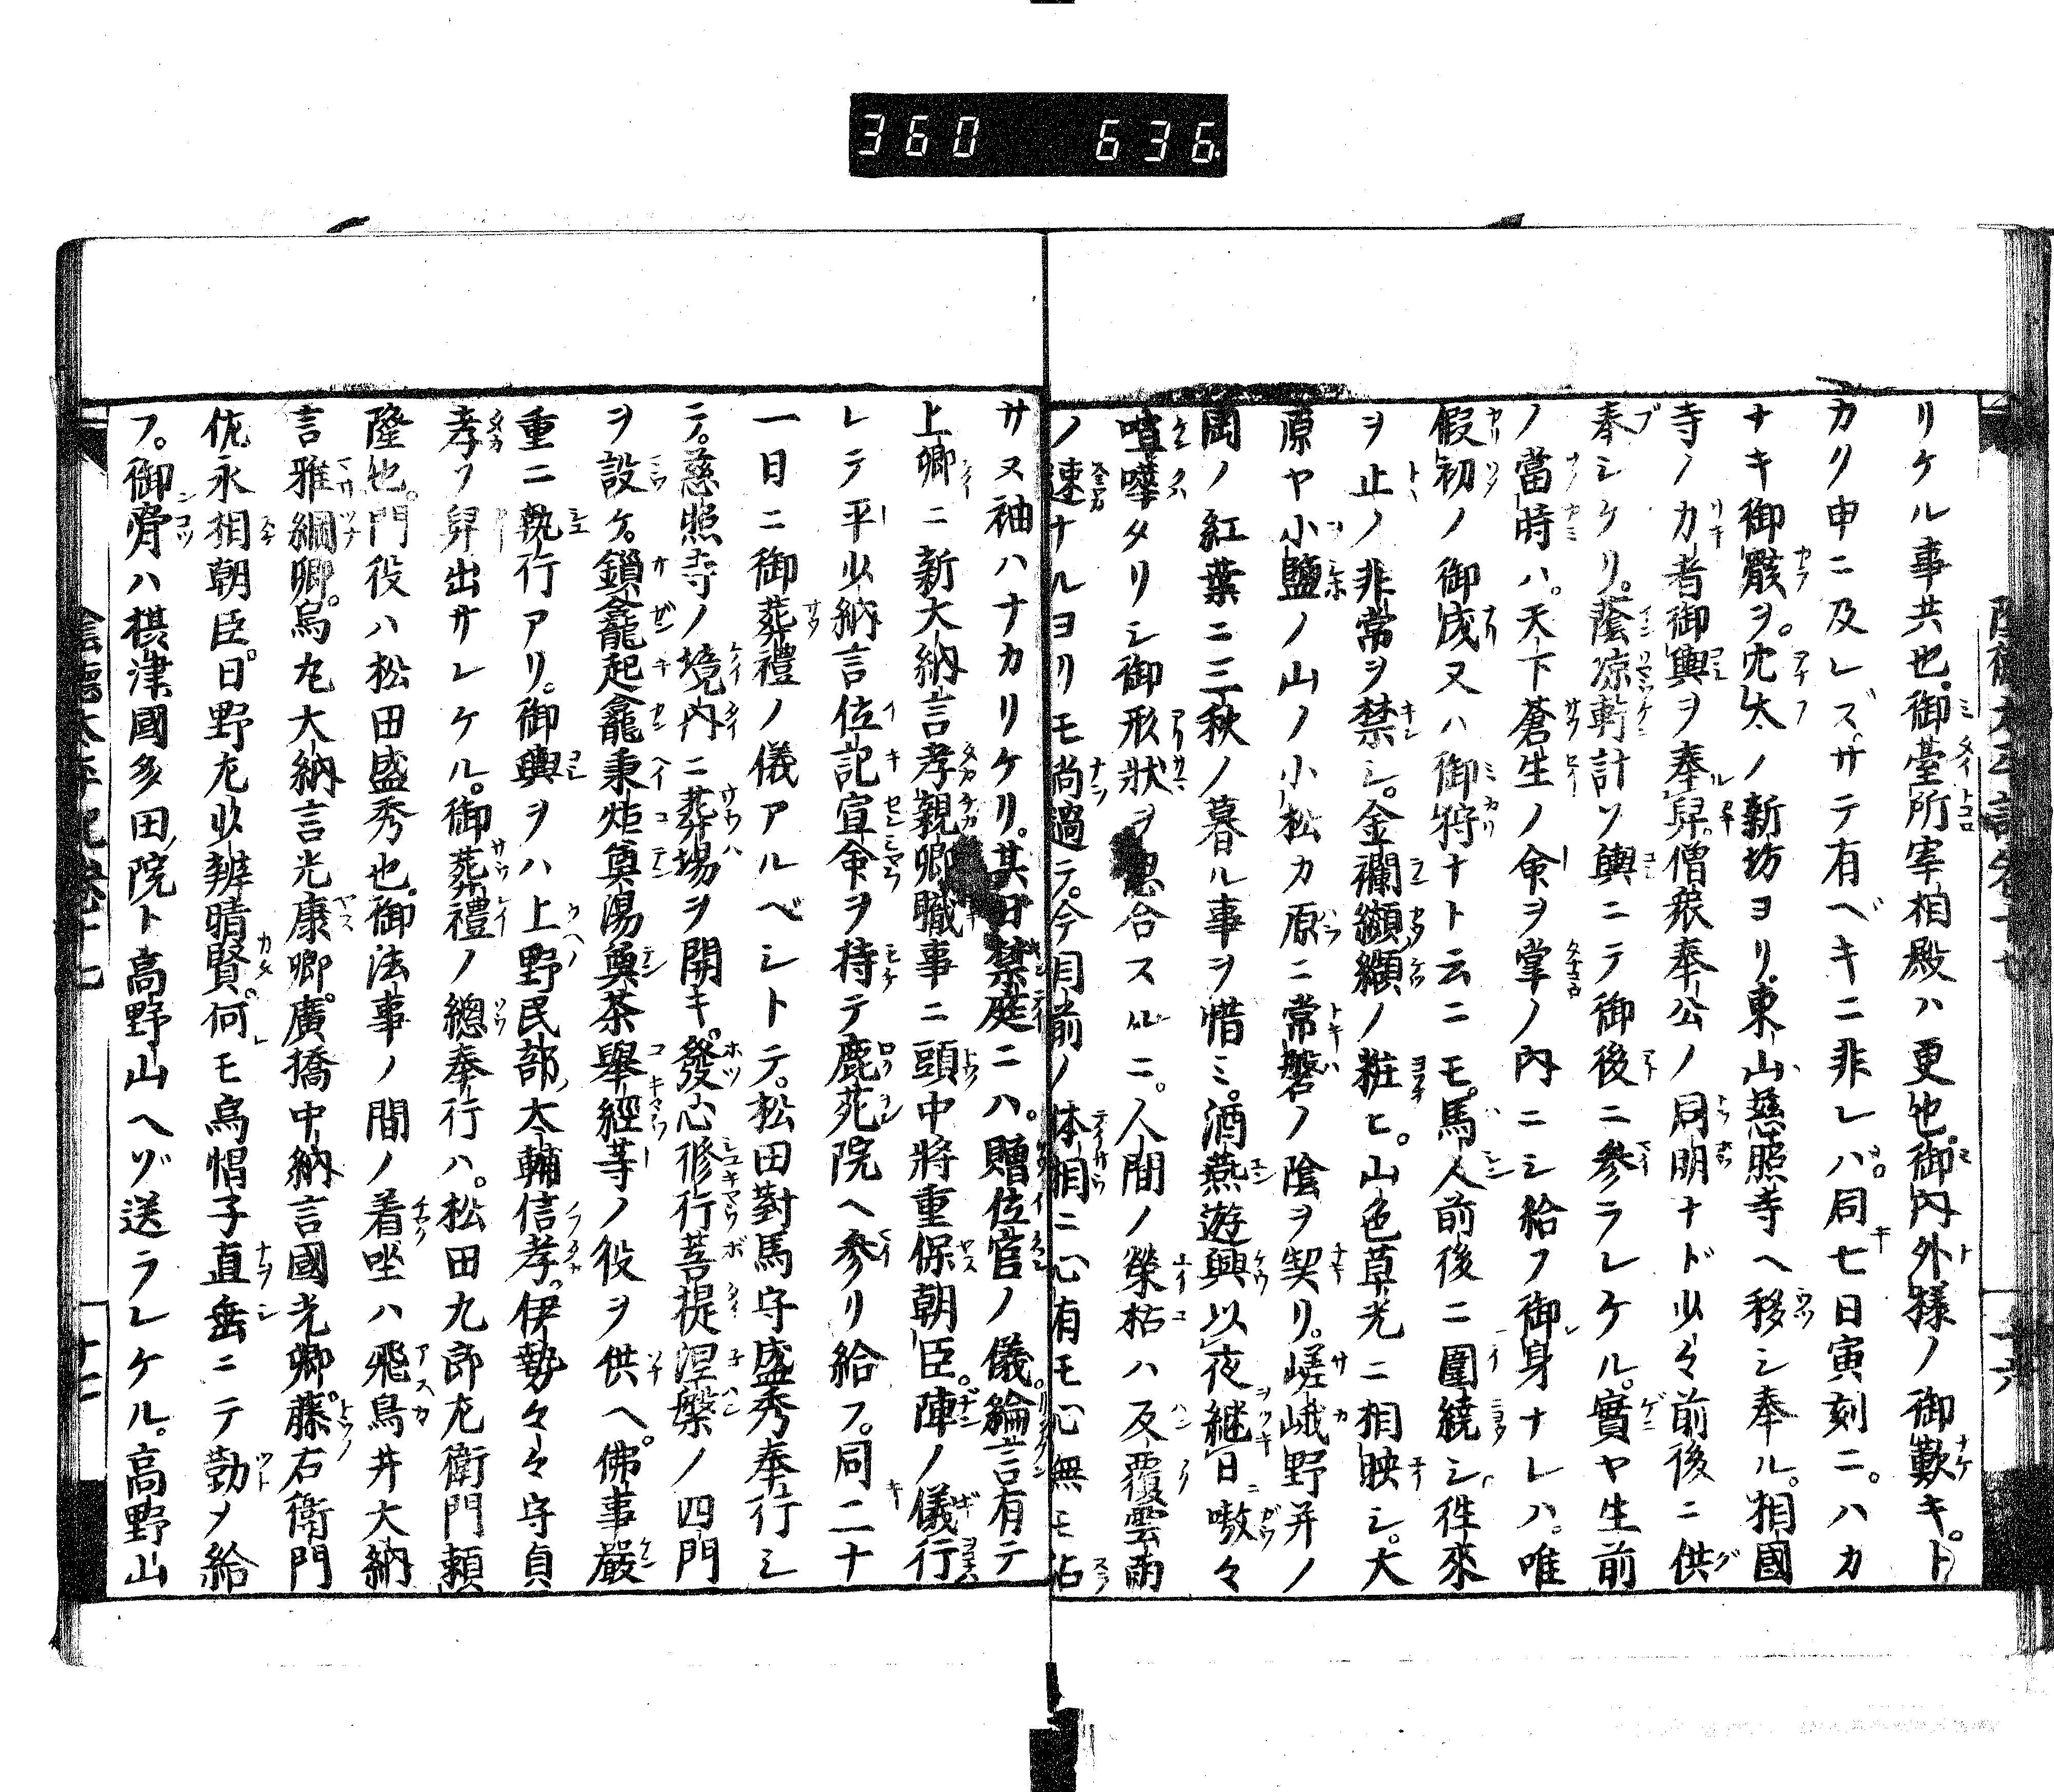 360 636
リケル事共也。御臺所宰相殿ハ更也。御内外樣ノ御歎キ。ト
カリ申ニ及レズ。サテ有ベキニ非レハ。同七日寅刻ニ。ハカ
ナキ御骸ヲ。穴太ノ新坊ヨリ。東山慈照寺ヘ移シ奉ル。相國
寺ノ力者御輿ヲ奉舁。僧衆奉公ノ同朋ナド少々前後ニ供
奉シケリ。蔭凉軒計ソ輿ニテ御後ニ参ラレケル。實ヤ生前
ノ當時ハ。天下蒼生ノ命ヲ掌ノ内ニシ給フ御身ナレハ。唯
假初ノ御成又ハ御狩ナト云ニモ。馬人前後ニ圍繞シ。徃來
ヲ止ノ非常ヲ禁シ。金襴纐纈ノ粧ヒ。山色草光ニ相映シ。大
原ヤ小鹽ノ山ノ小松カ原ニ常磐ノ陰ヲ契リ。嵯峨野并ノ
岡ノ紅葉ニ三秋ノ暮ル事ヲ惜ミ。酒燕遊興以夜継日嗷々
喧嘩タリシ御形狀ヲ思合スルニ。人間ノ榮枯ハ反覆雲雨
ノ速ナルヨリモ尚過テ。今目前ノ体相ニ心有モ心無モ沾
サヌ袖ハナカリケリ。其日禁庭ニハ。贈位官ノ儀。綸言有テ
上卿ニ新大納言孝親卿職事ニ頭中將重保朝臣。陣ノ儀行
レテ平少納言位記宣命ヲ持テ鹿苑院ヘ参リ給フ。同二十
一日ニ御葬禮ノ儀アルベシトテ。松田對馬守盛秀奉行シ
テ。慈照寺ノ境内ニ葬場ヲ開キ。發心修行菩提涅槃ノ四門
ヲ設ケ。鎖龕起龕秉炬奠湯奠茶擧經等ノ役ヲ供ヘ。佛事嚴
重ニ執行アリ。御輿ヲハ上野民部太輔信孝。伊勢々々守貞
孝ソ舁出サレケル。御葬禮ノ總奉行ハ。松田九郎左衛門頼
隆也。門役ハ松田盛秀也。御法事ノ間ノ着坐ハ飛鳥井大納
言雅綱卿。烏丸大納言光康卿。廣橋中納言國光卿。藤右衛門
佐永相朝臣。日野左少辨晴賢。何モ烏帽子直垂ニテ勤メ給
フ。御骨ハ攝津國多田院ト高野山ヘゾ送ラレケル。高野山